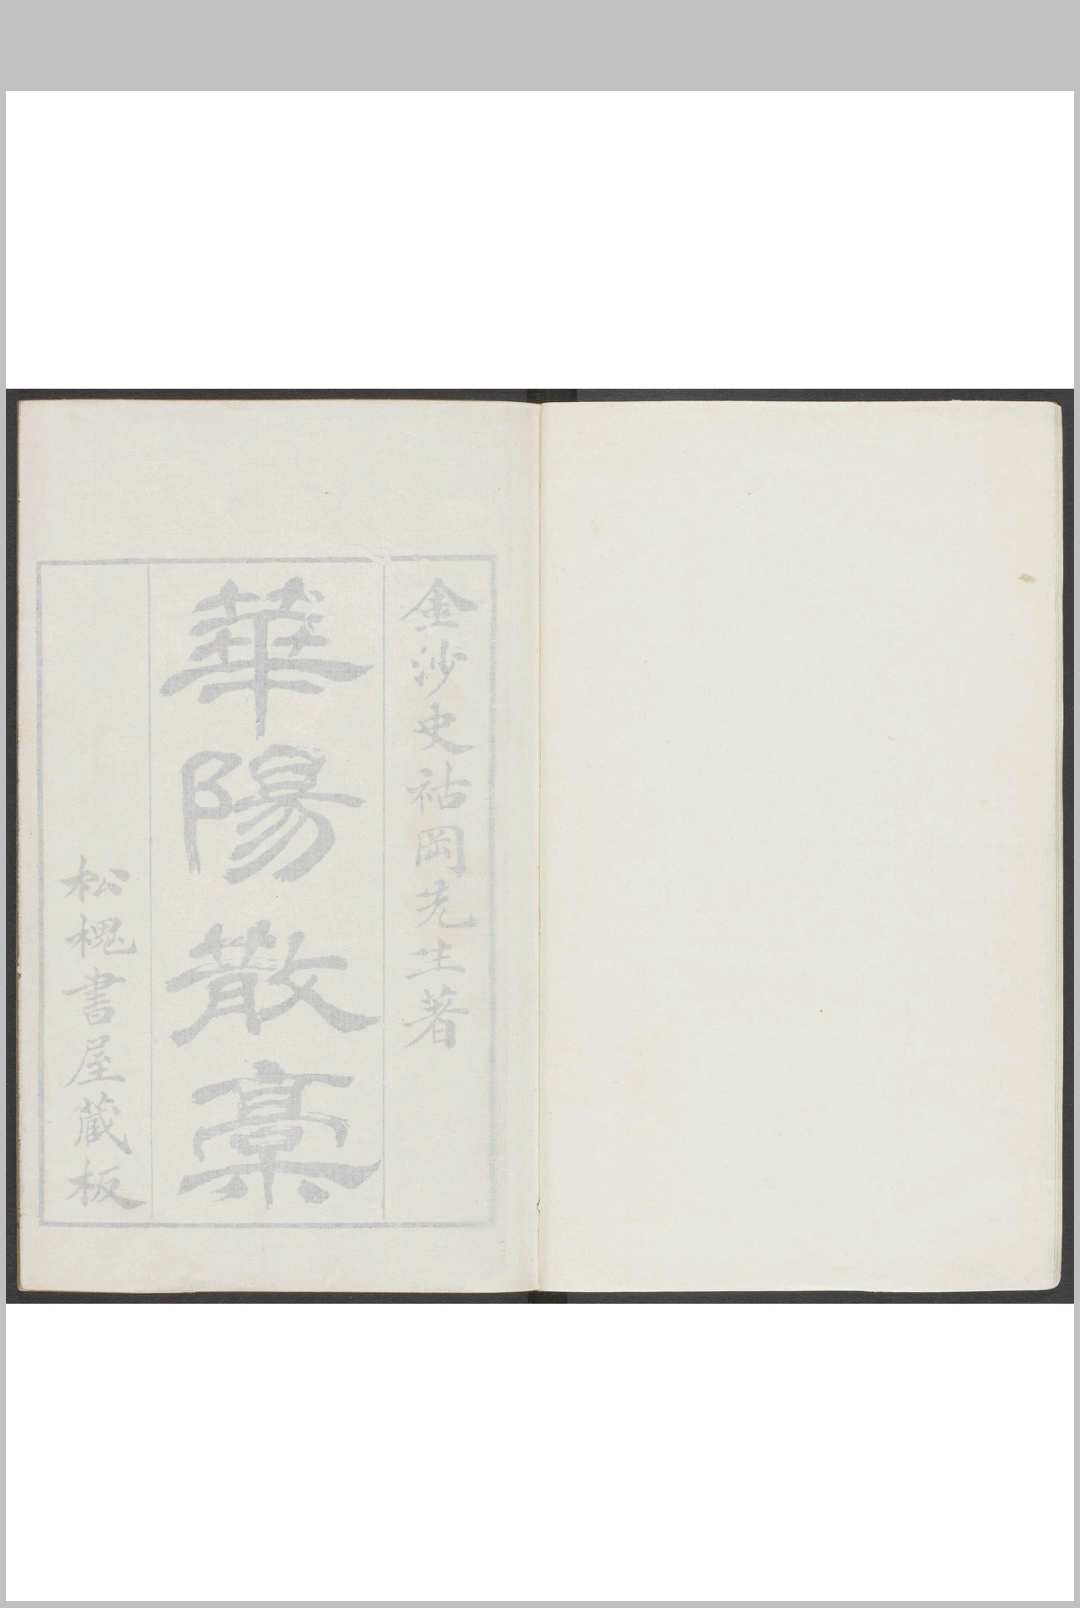 金沙史祜岡先生著
華陽散稾
松槐書屋蔵板